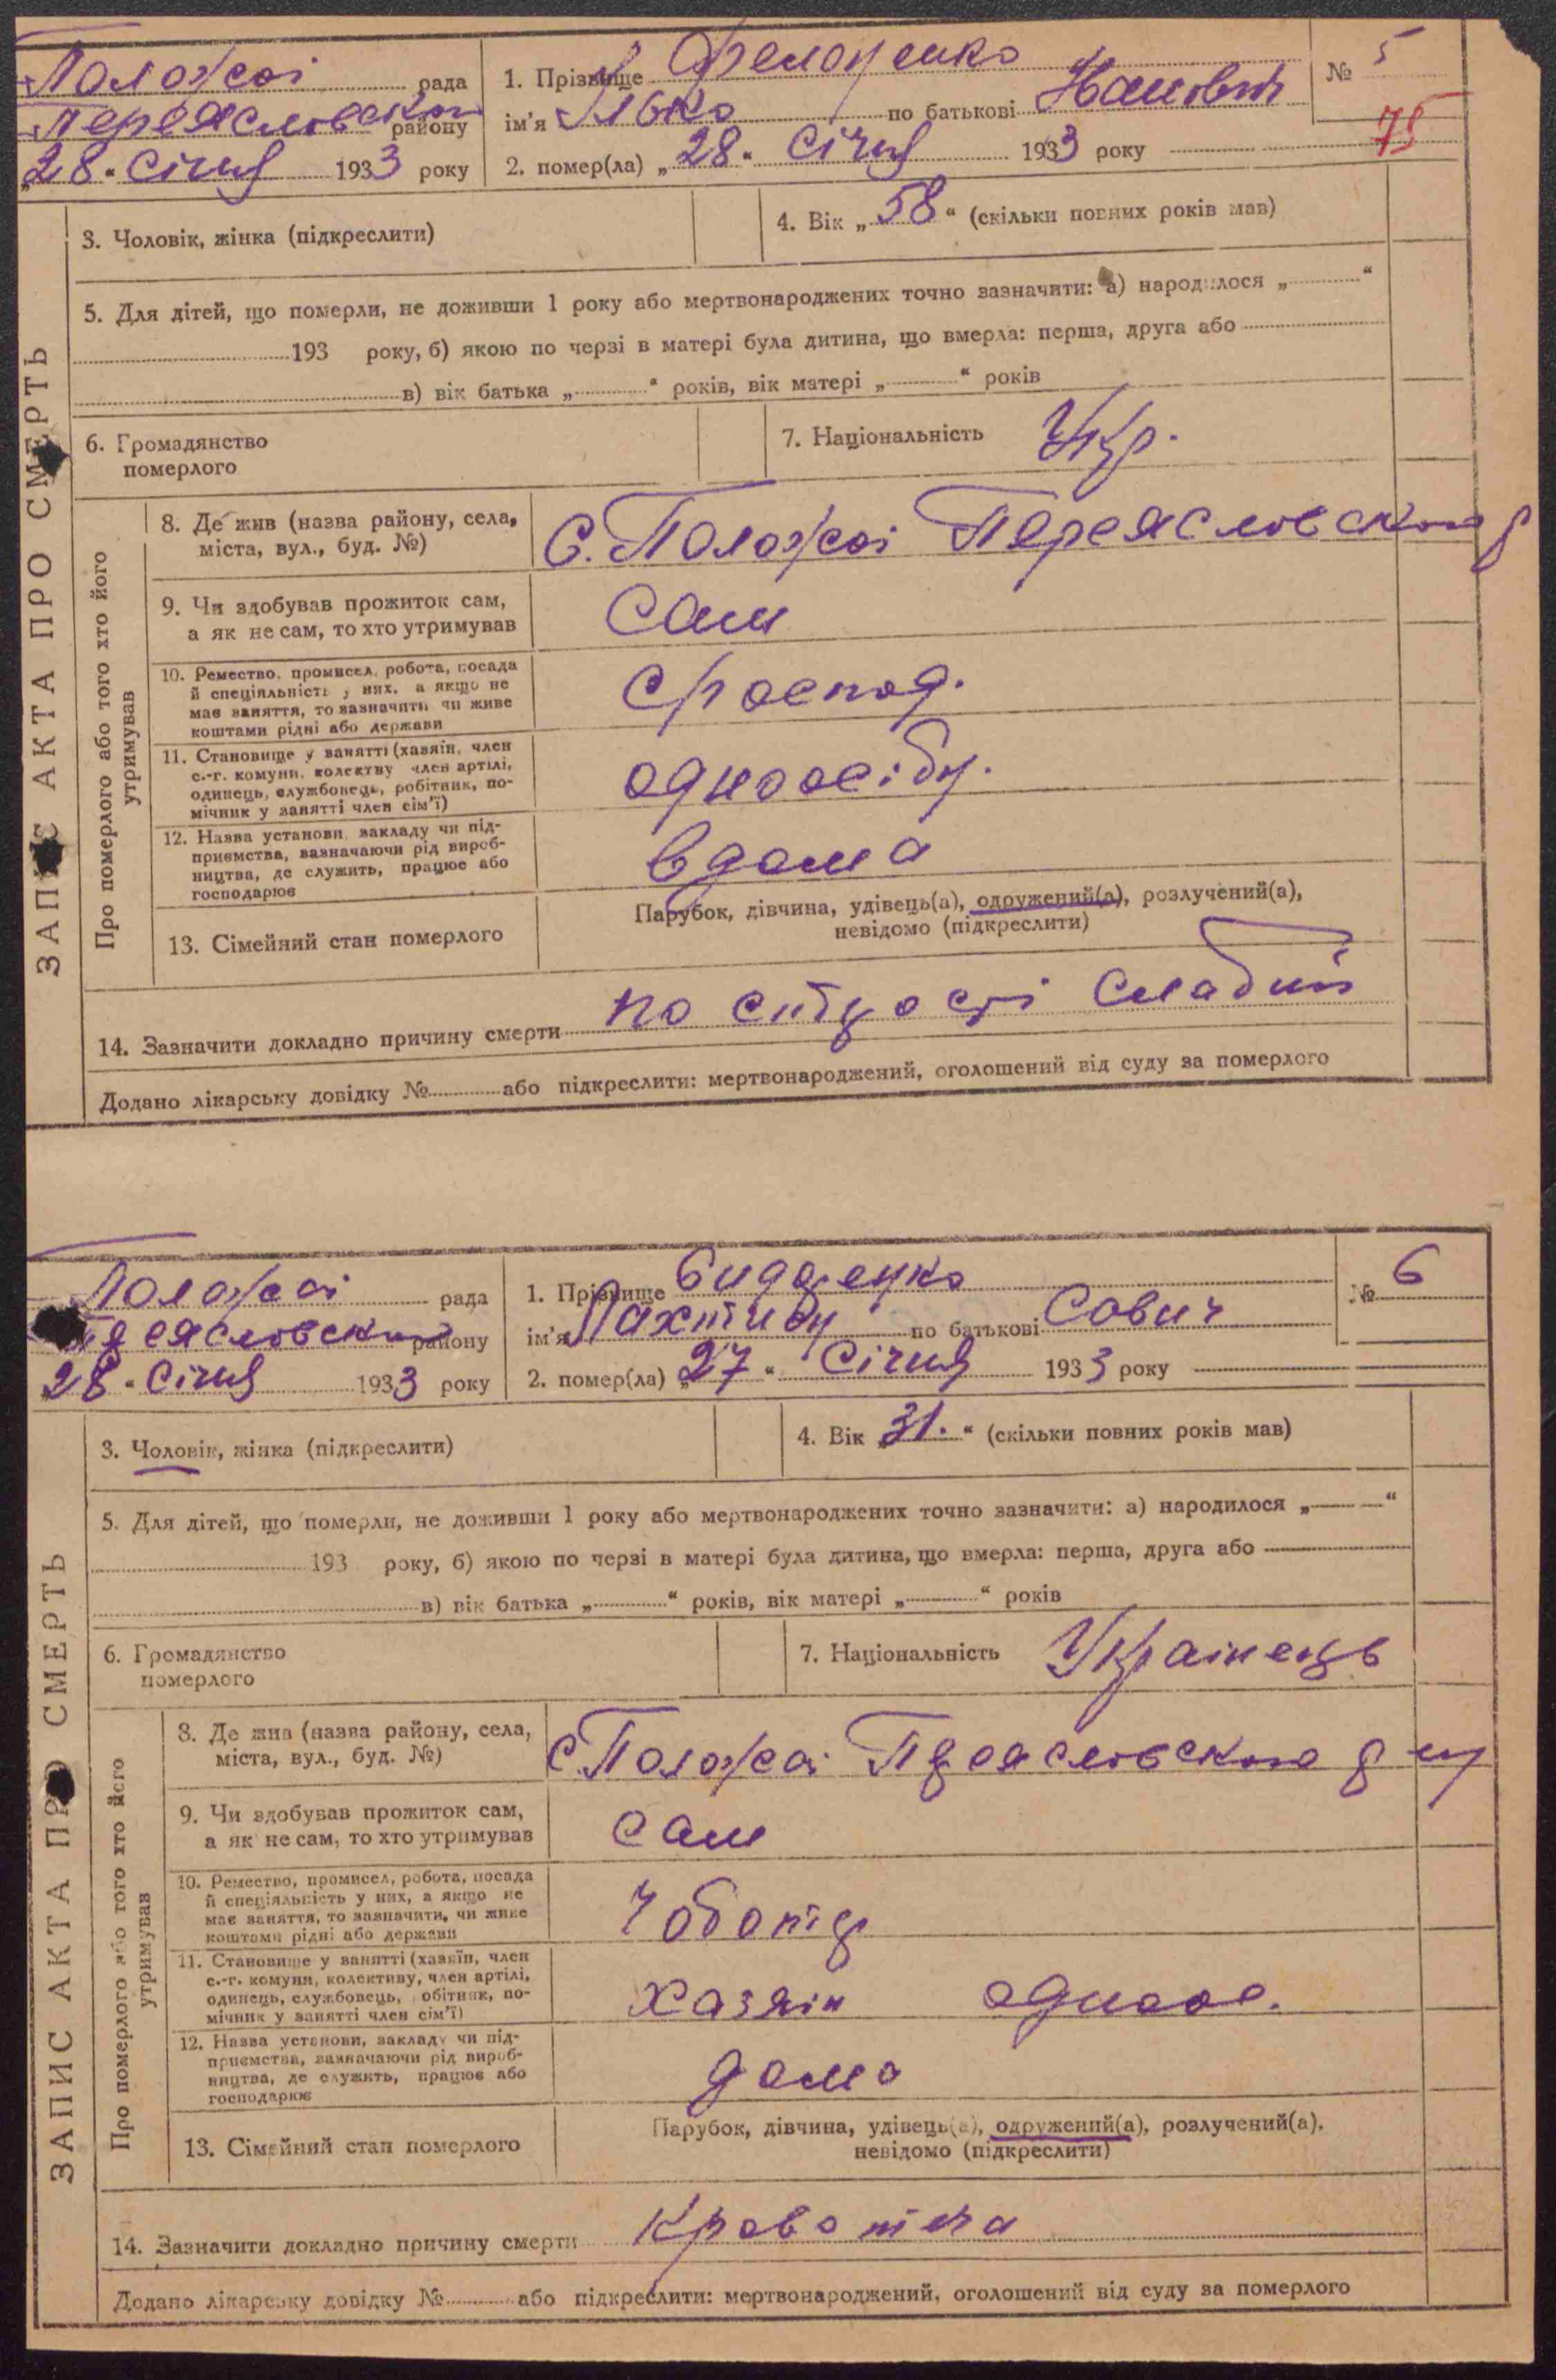 Положаї рада
Переясловского району
„28“ Січня 1933 року
1. Прізвище
ім'я по батькові
№ 5
75
2. помер(ла) „28“ Січня 1933 року
3. Чоловік, жінка (підкреслити)
4. Вік „58“ (скільки повних років мав)
5. Для дітей, що померли, не доживши 1 року або мертвонароджених точно зазначити: а) народилося „ “
193 року, б) якою по черзі в матері була дитина, що вмерла: перша, друга або
в) вік батька „ “ років, вік матері „ “ років
6. Громадянство
померлого
7. Національність Укр.
ЗАПИС АКТА ПРО СМЕРТЬ
Про померлого або того хто його
утримував
8. Де жив (назва району, села,
міста, вул., буд. №)
С. Положаї Переясловского р
9. Чи здобував прожиток сам,
а як не сам, то хто утримував
сам
10. Ремество, промисел, робота, посада
й спеціяльність у них, а якщо не
має заняття, то зазначити чи живе
коштами рідні або держави
11. Становище у занятті (хазяїн, член
с.-г. комуни, колективу член артілі,
одинець, службовець, робітник, по-
мічник у занятті член сім'ї)
одноосібн.
12. Назва установи, закладу чи під-
приємства, зазначаючи рід вироб-
ництва, де служить, працює або
господарює
вдома
13. Сімейний стан померлого
Парубок, дівчина, удівець(а), одружений(а), розлучений(а),
невідомо (підкреслити)
14. Зазначити докладно причину смерти по слабий
Додано лікарську довідку № або підкреслити: мертвонароджений, оголошений від суду за померлого
Положаї рада
району
„28“ Січня 1933 року
1. Прізвище
ім'я по батькові Сович
№ 6
2. помер(ла) „27“ Січня 1933 року
3. Чоловік, жінка (підкреслити)
4. Вік „31.“ (скільки повних років мав)
5. Для дітей, що померли, не доживши 1 року або мертвонароджених точно зазначити: а) народилося „ “
193 року, б) якою по черзі в матері була дитина, що вмерла: перша, друга або
в) вік батька „ “ років, вік матері „ “ років
6. Громадянство
померлого
7. Національність Українець
ЗАПИС АКТА ПРО СМЕРТЬ
Про померлого або того хто його
утримував
8. Де жив (назва району, села,
міста, вул., буд. №)
С. Положаї Переясловского р
9. Чи здобував прожиток сам,
а як не сам, то хто утримував
сам
10. Ремество, промисел, робота, посада
й спеціяльність у них, а якщо не
має заняття, то зазначити, чи живе
коштами рідні або держави
11. Становище у занятті (хазяїн, член
с.-г. комуни, колективу, член артілі,
одинець, службовець, робітник, по-
мічник у занятті член сім'ї)
хазяїн одноос.
12. Назва установи, закладу чи під-
приємства, зазначаючи рід вироб-
ництва, де служить, працює або
господарює
дома
13. Сімейний стан померлого
Парубок, дівчина, удівець(а), одружений(а), розлучений(а),
невідомо (підкреслити)
14. Зазначити докладно причину смерти Кровотеча
Додано лікарську довідку № або підкреслити: мертвонароджений, оголошений від суду за померлого